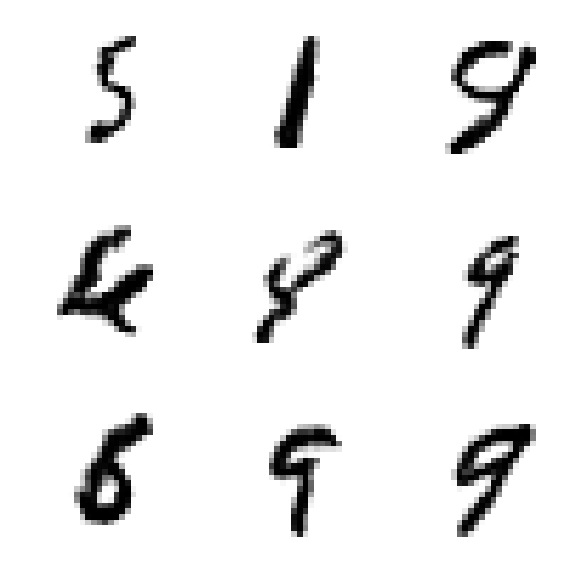 5 1 9
8 9
6 9 9